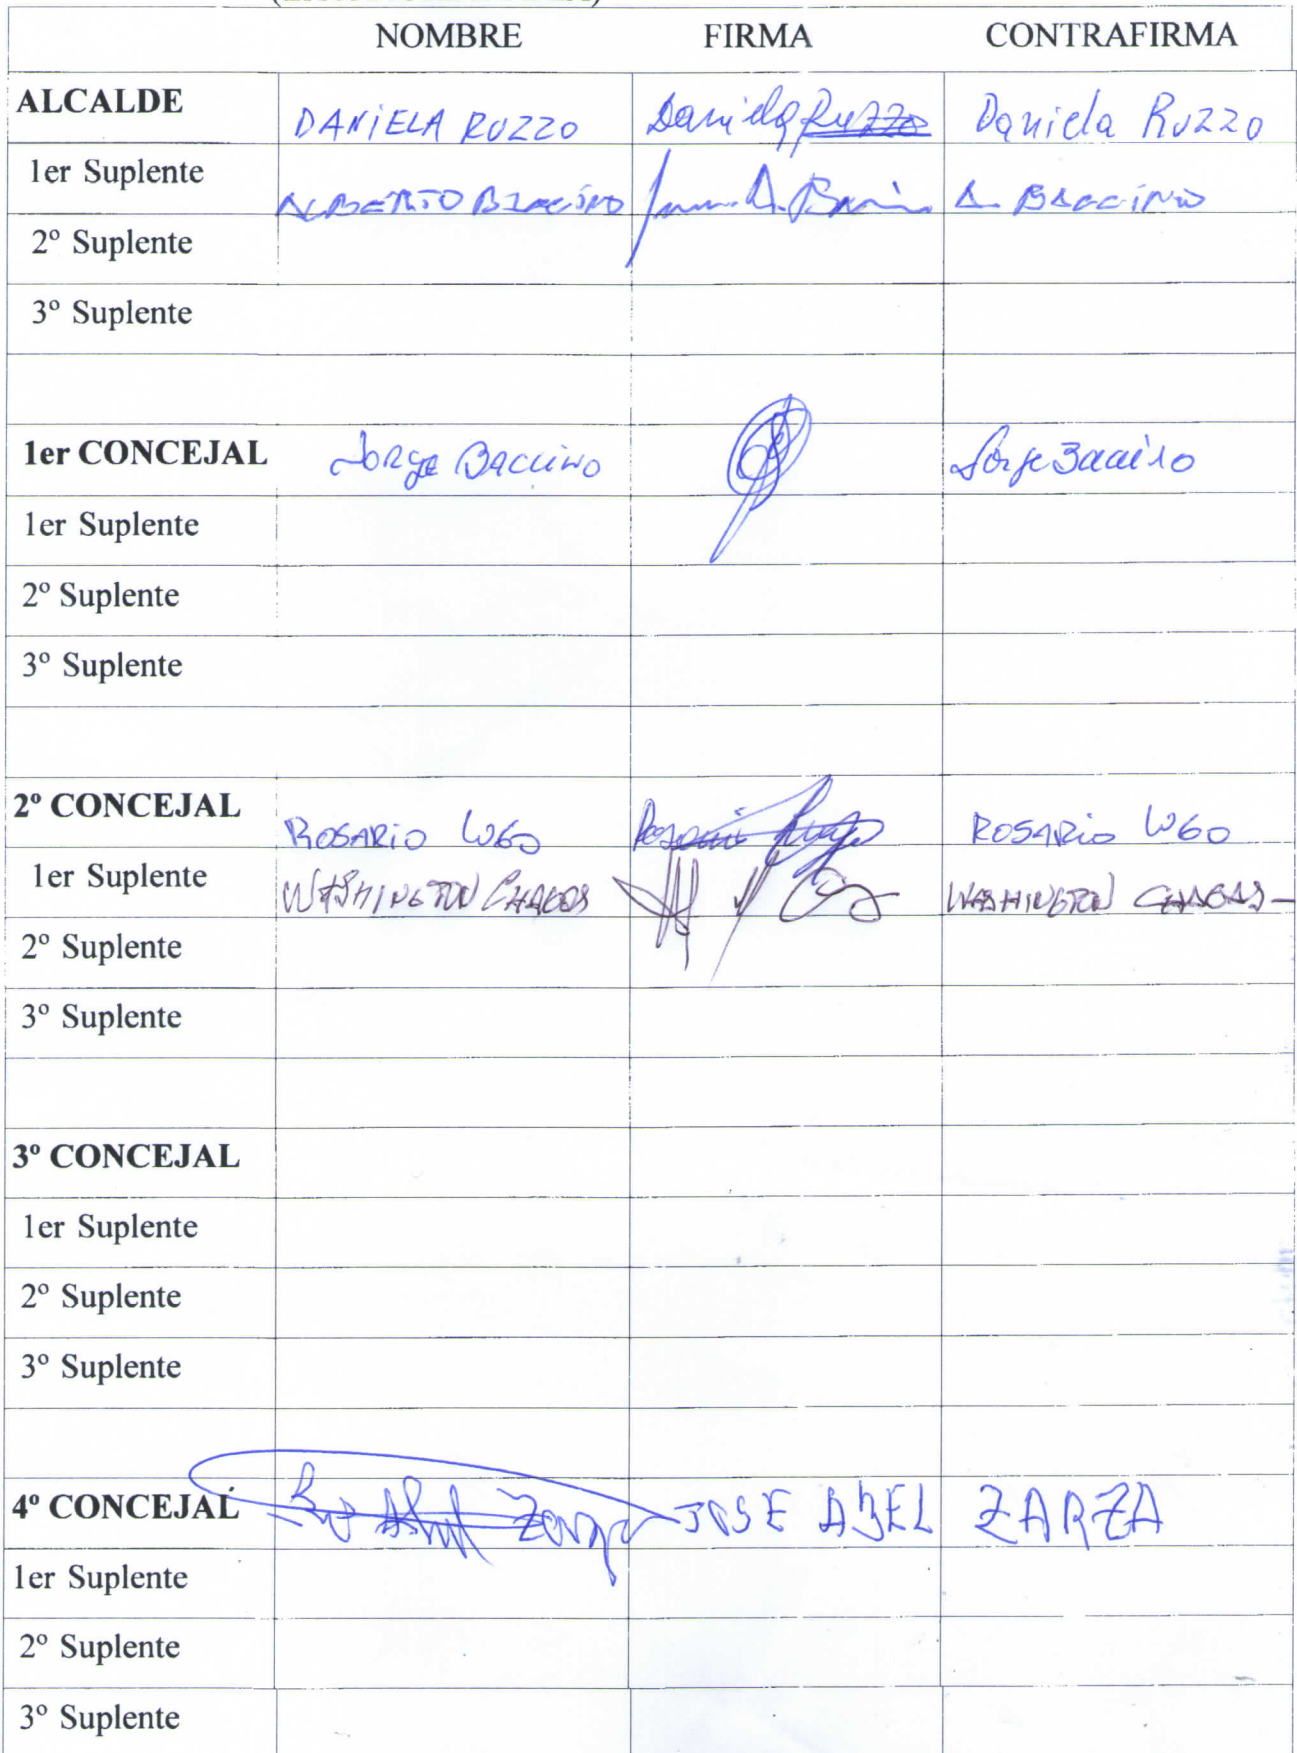 NOMBRE FIRMA CONTRAFIRMA
ALCALDE DANIELA RUZZO Daniela Ruzzo Daniela Ruzzo
1er Suplente ALBERTO BACCINO A. BACCINO
2º Suplente
3º Suplente
1er CONCEJAL Jorge BACCINO Jorge Baccino
1er Suplente
2º Suplente
3º Suplente
2º CONCEJAL ROSARIO LUGO Rosario Lugo ROSARIO LUGO
1er Suplente WASHINGTON CHAGAS WASHINGTON CHAGAS
2º Suplente
3º Suplente
3º CONCEJAL
1er Suplente
2º Suplente
3º Suplente
4º CONCEJAL Zarza JOSE ABEL ZARZA
1er Suplente
2º Suplente
3º Suplente